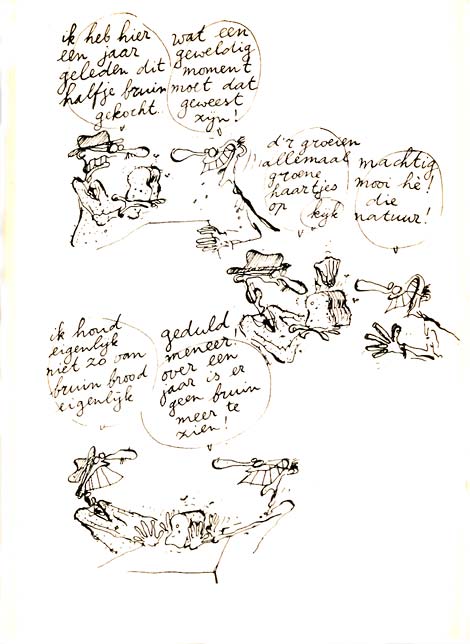 ik heb hier
een jaar
geleden dit
halfje bruin
gekocht.
wat een
geweldig
moment
moet dat
geweest
zijn!
d'r groeien
allemaal
groene
haartjes
op kijk
machtig
mooi hè!
die
natuur!
ik houd
eigenlijk
niet zo van
bruin brood
eigenlijk
geduld
meneer,
over een
jaar is er
geen bruin
meer te
zien!